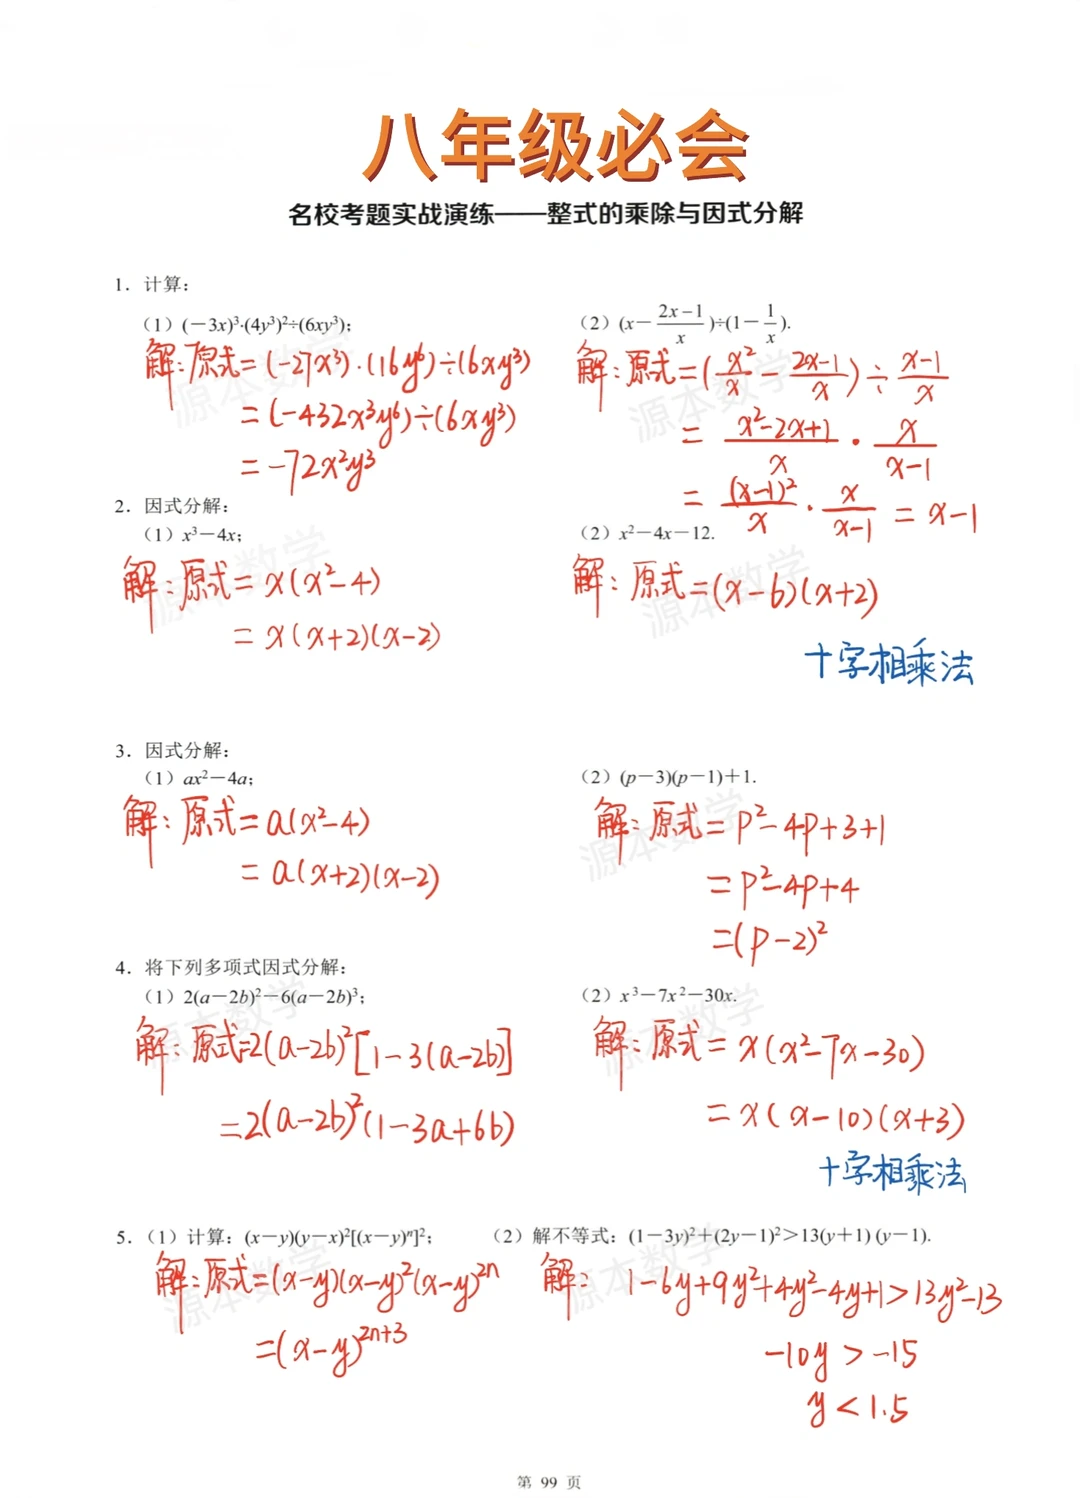 八年级必会
名校考题实战演练——整式的乘除与因式分解
1. 计算：
（1）(－3x)³·(4y³)²÷(6xy³);
解：原式＝(-27x³)·(16y⁶)÷(6xy³)
＝(-432x³y⁶)÷(6xy³)
＝-72x²y³
（2）(x－(2x－1)/x)÷(1－1/x).
解：原式＝(x²/x－(2x-1)/x)÷(x-1)/x
＝(x²-2x+1)/x·x/(x-1)
＝(x-1)²/x·x/(x-1)＝x-1
2. 因式分解：
（1）x³－4x;
解：原式＝x(x²-4)
＝x(x+2)(x-2)
（2）x²－4x－12.
解：原式＝(x-6)(x+2)
十字相乘法
3. 因式分解：
（1）ax²－4a;
解：原式＝a(x²-4)
＝a(x+2)(x-2)
（2）(p－3)(p－1)＋1.
解：原式＝p²-4p+3+1
＝p²-4p+4
＝(p-2)²
4. 将下列多项式因式分解：
（1）2(a－2b)²－6(a－2b)³;
解：原式=2(a-2b)²[1-3(a-2b)]
＝2(a-2b)²(1-3a+6b)
（2）x³－7x²－30x.
解：原式＝x(x²-7x-30)
＝x(x-10)(x+3)
十字相乘法
5.（1）计算：(x－y)(y－x)²[(x－y)ⁿ]²;
解：原式＝(x-y)(x-y)²(x-y)²ⁿ
＝(x-y)²ⁿ⁺³
（2）解不等式：(1－3y)²＋(2y－1)²＞13(y＋1) (y－1).
解：1-6y+9y²+4y²-4y+1＞13y²-13
-10y＞-15
y＜1.5
第 99 页
源本数学
源本数学
源本数学
源本数学
源本数学
源本数学
源本数学
源本数学
源本数学